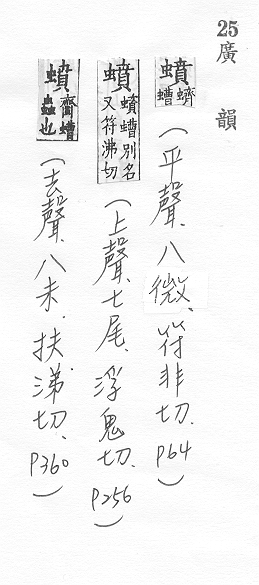 25廣韻
蟦 蠐螬（平聲、八微、符非切、P64）
蟦 蟦螬別名又符沸切（上聲、七尾、浮鬼切、P256）
蟦 齎螬蟲也（去聲、八未、扶涕切、P360）